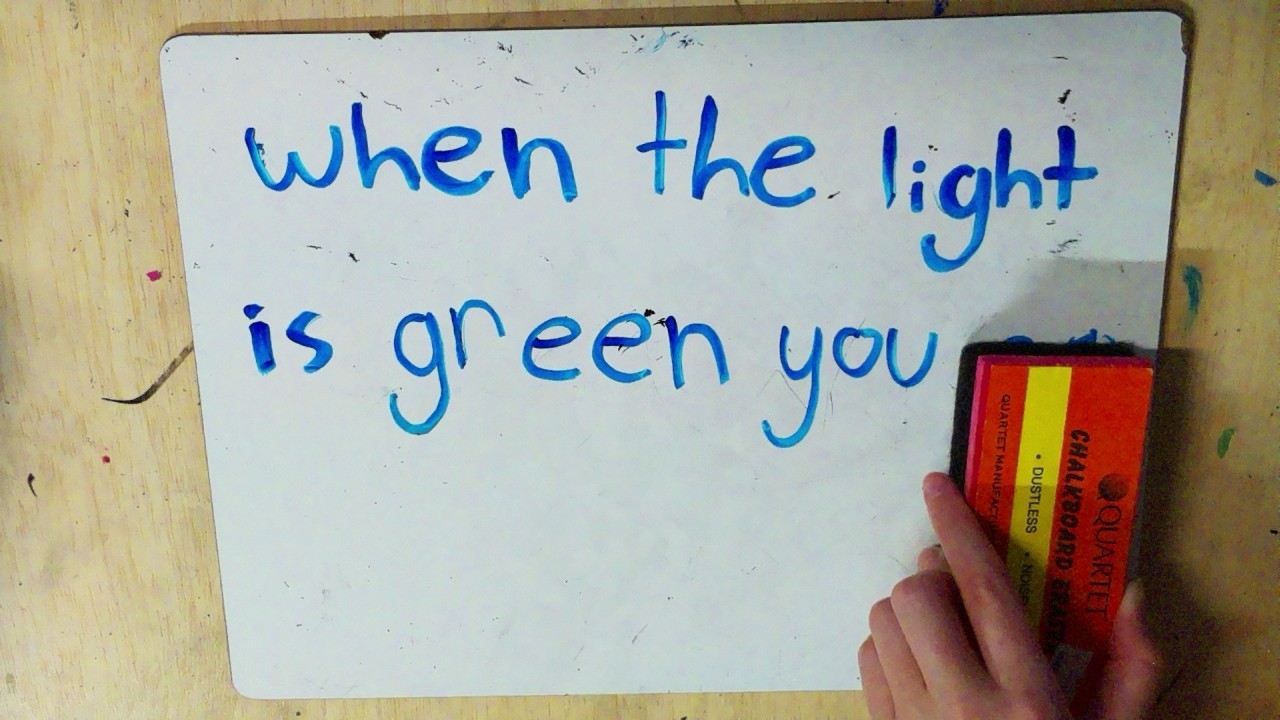 when the light
is green you
QUARTET
CHALKBOARD
• DUSTLESS
QUARTET